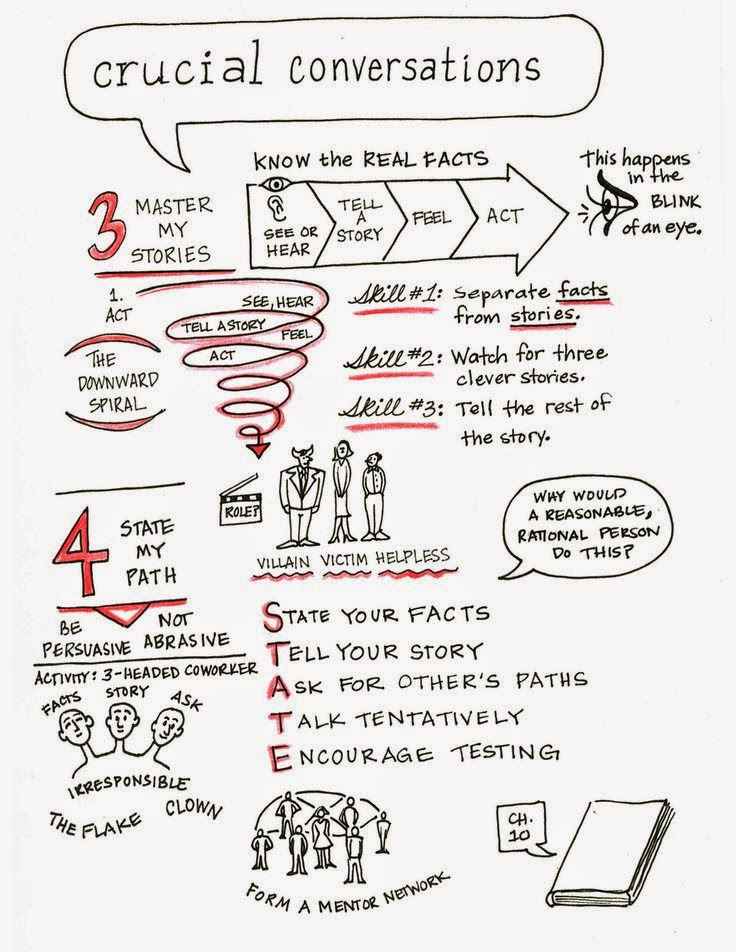 crucial conversations
KNOW the REAL FACTS
This happens
in the
BLINK
of an eye.
3 MASTER
MY
STORIES
SEE OR
HEAR
TELL
A
STORY
FEEL
ACT
1.
ACT
THE
DOWNWARD
SPIRAL
SEE, HEAR
TELL A STORY
FEEL
ACT
Skill #1: Separate facts
from stories.
Skill #2: Watch for three
clever stories.
Skill #3: Tell the rest of
the story.
ROLE?
VILLAIN VICTIM HELPLESS
WHY WOULD
A REASONABLE,
RATIONAL PERSON
DO THIS?
4 STATE
MY
PATH
BE
PERSUASIVE
NOT
ABRASIVE
ACTIVITY: 3-HEADED COWORKER
FACTS
STORY
ASK
IRRESPONSIBLE
THE FLAKE
CLOWN
STATE YOUR FACTS
TELL YOUR STORY
ASK FOR OTHER'S PATHS
TALK TENTATIVELY
ENCOURAGE TESTING
FORM A MENTOR NETWORK
CH.
10